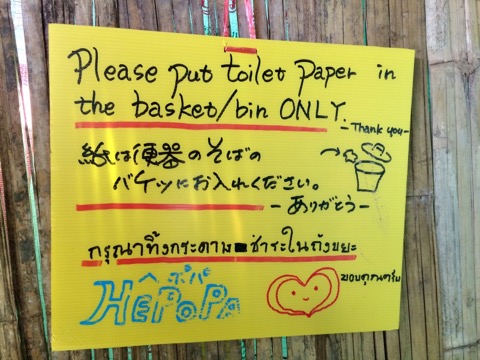 Please put toilet paper in
the basket/bin ONLY.
-Thank you-
紙は便器のそばの
バケツにお入れください。
-ありがとう-
กรุณาทิ้งกระดาษชำระในถังขยะ
ขอบคุณครับ
ヘポパ
HEPOPA